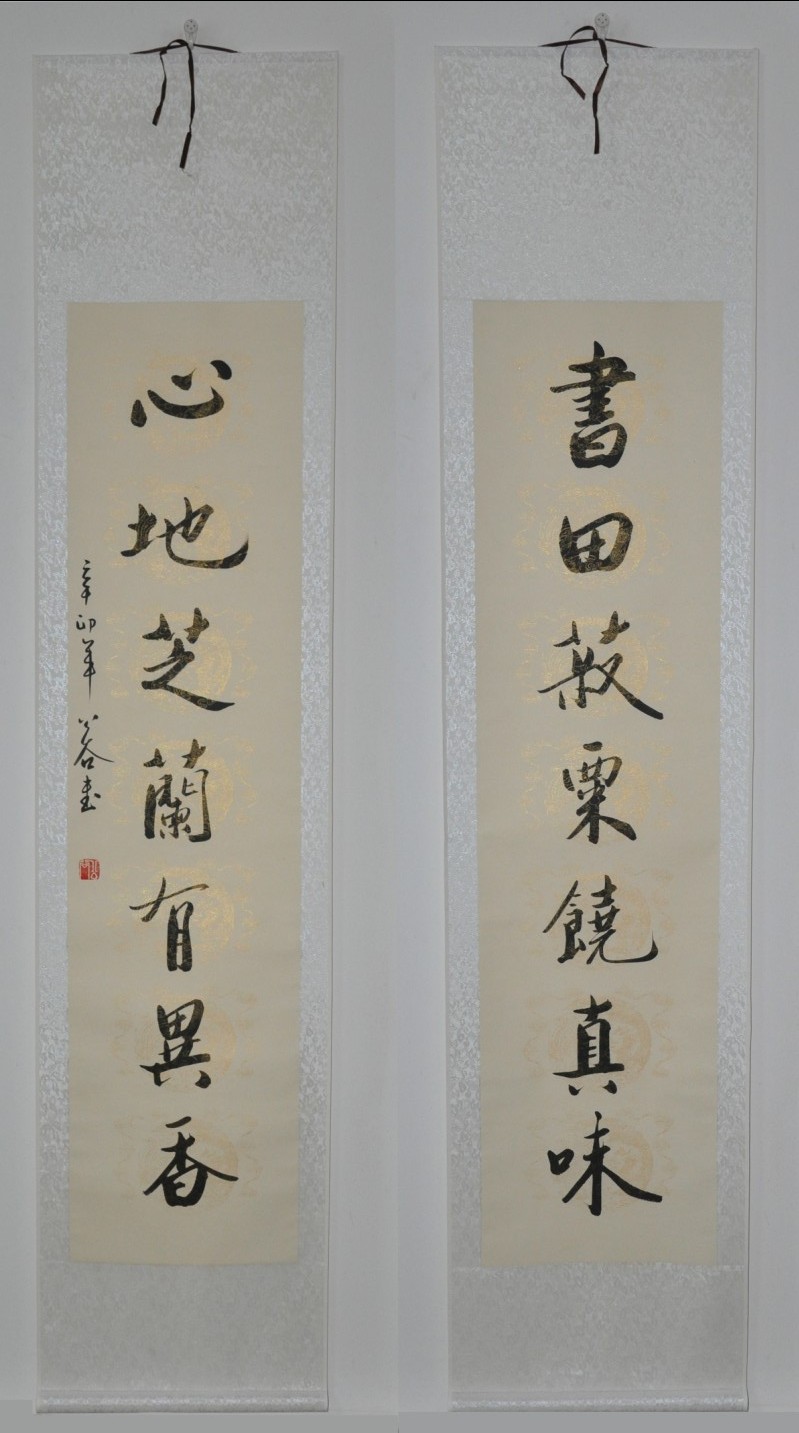 書田菽粟饒真味
心地芝蘭有異香
辛卯年 公谷書